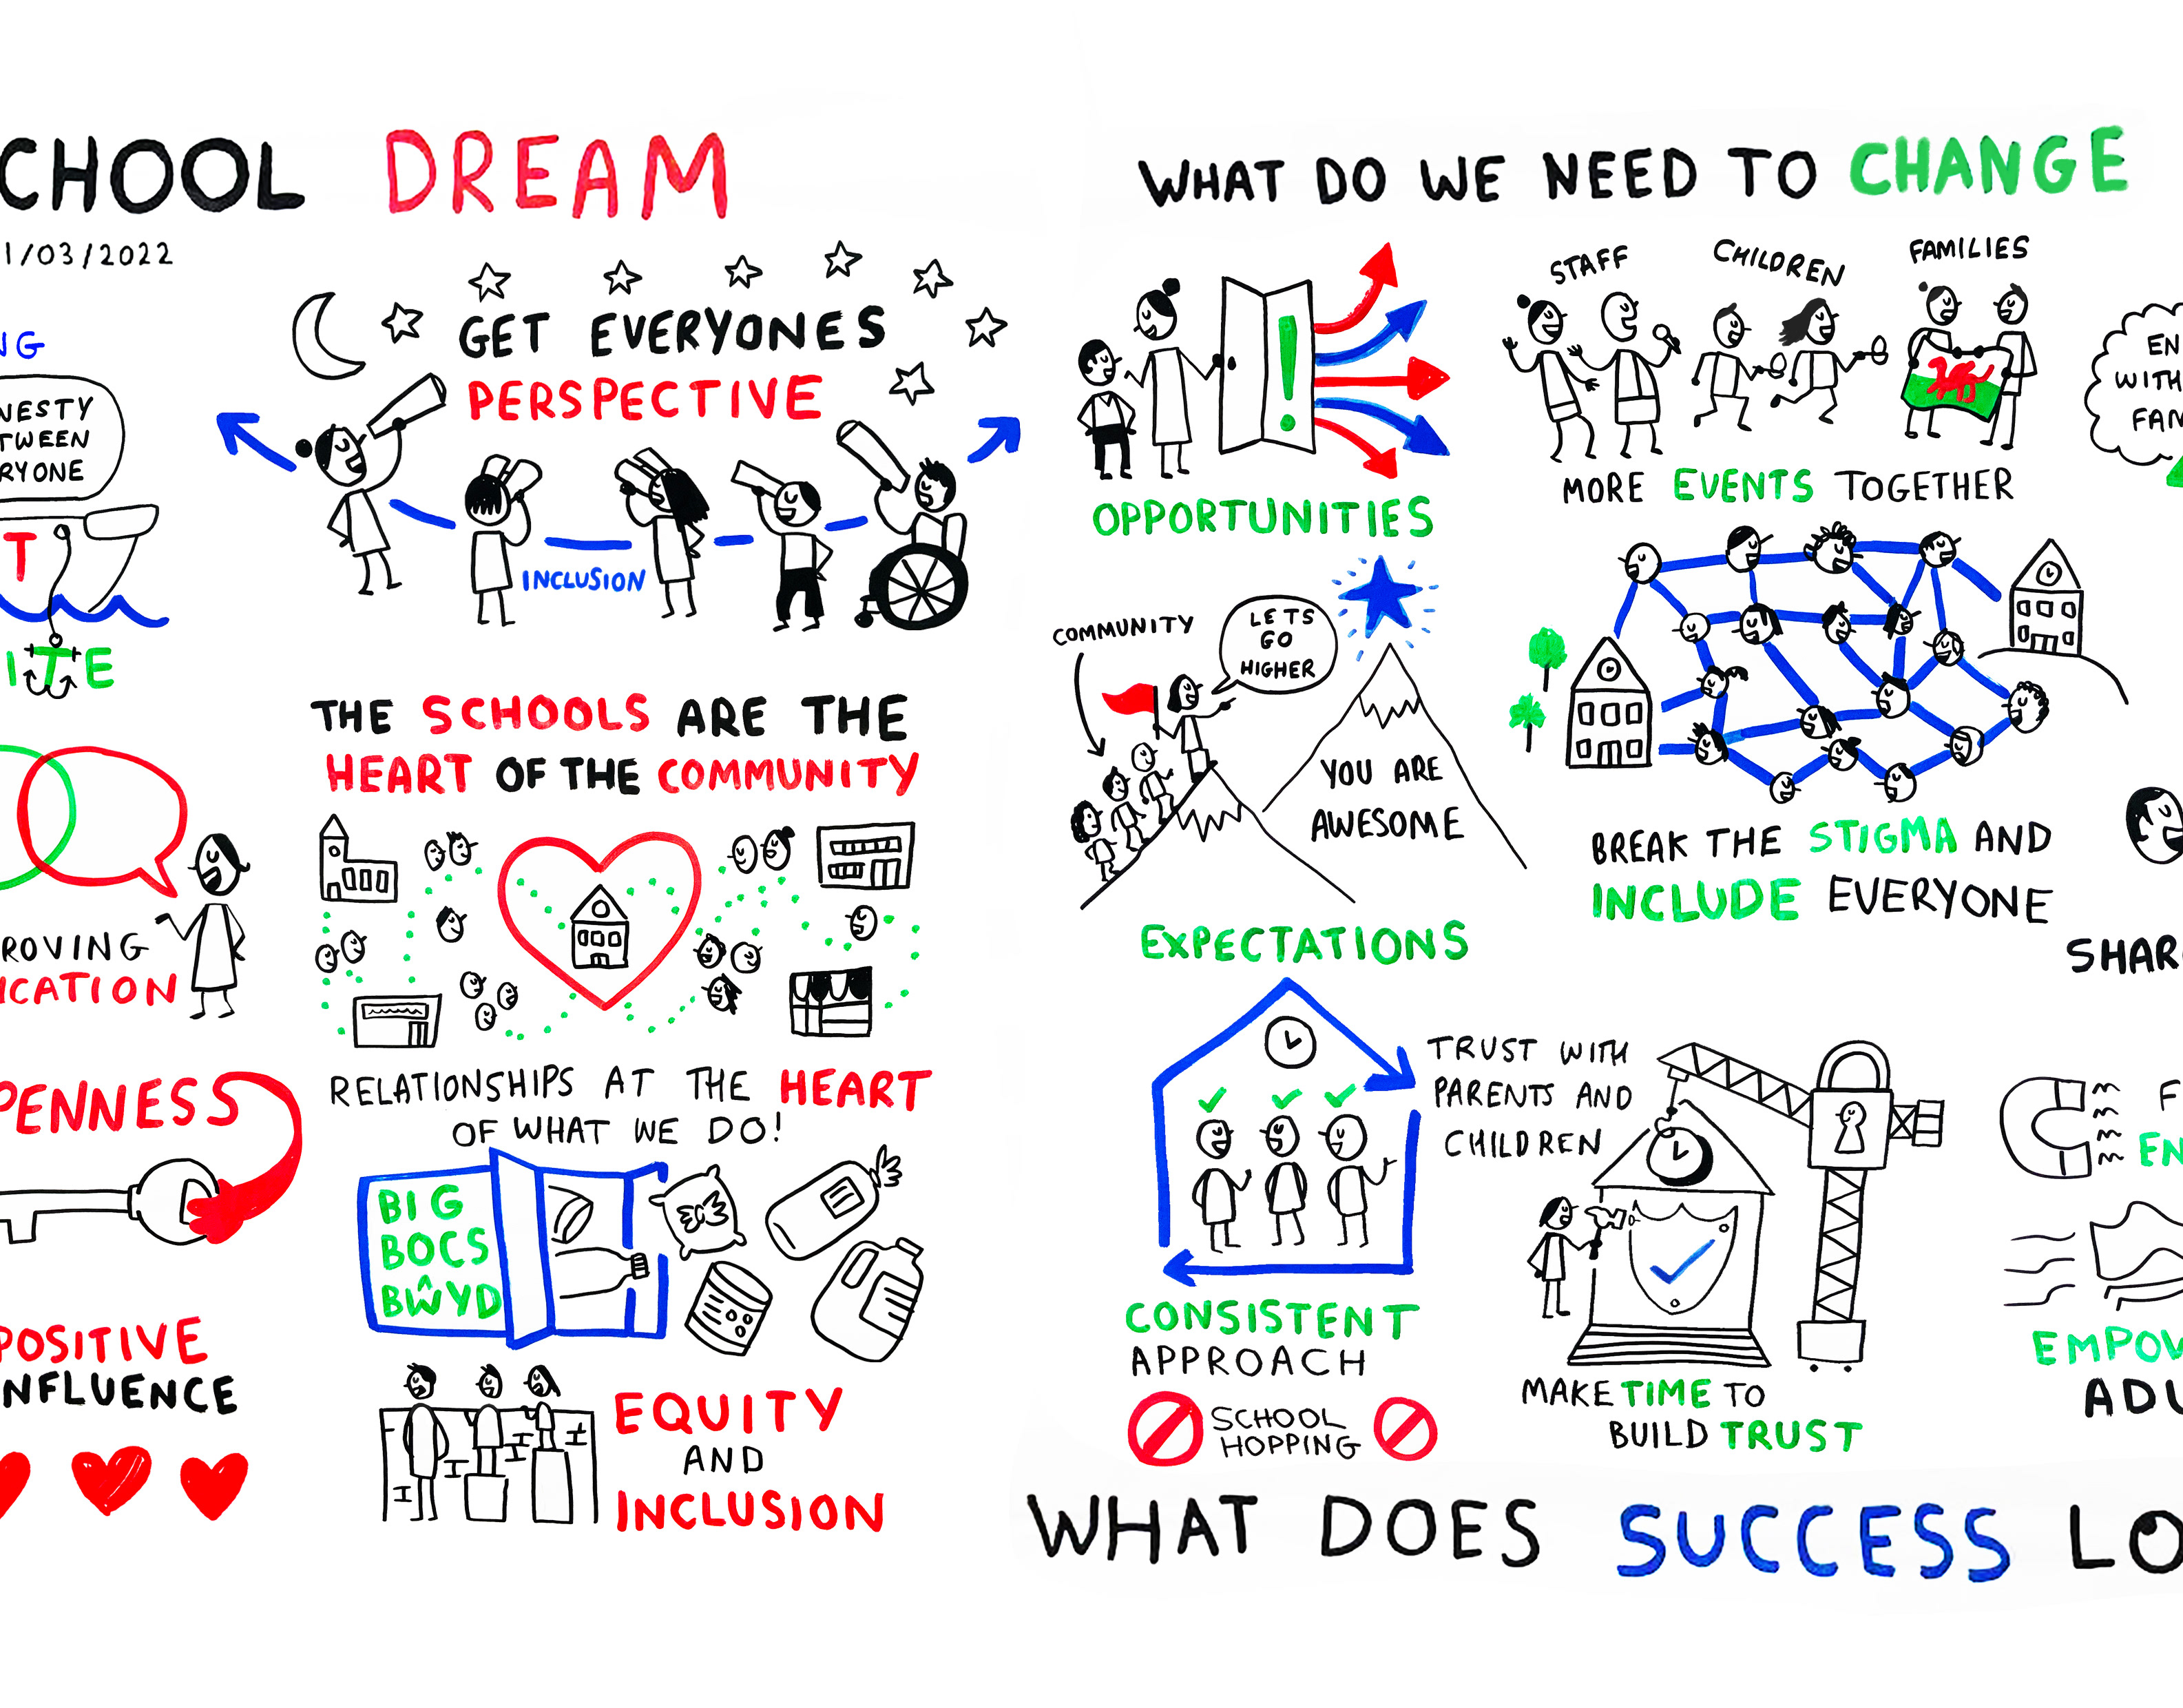 CHOOL DREAM
1/03/2022
NG
NESTY
TWEEN
RYONE
T
ITE
ROVING
ICATION
PENNESS
POSITIVE
NFLUENCE
GET EVERYONES
PERSPECTIVE
INCLUSION
THE SCHOOLS ARE THE
HEART OF THE COMMUNITY
RELATIONSHIPS AT THE HEART
OF WHAT WE DO!
BIG
BOCS
BŴYD
EQUITY
AND
INCLUSION
WHAT DO WE NEED TO CHANGE
OPPORTUNITIES
STAFF
CHILDREN
FAMILIES
MORE EVENTS TOGETHER
EN
WITH
FAM
COMMUNITY
LETS
GO
HIGHER
YOU ARE
AWESOME
EXPECTATIONS
BREAK THE STIGMA AND
INCLUDE EVERYONE
SHAR
CONSISTENT
APPROACH
SCHOOL
HOPPING
TRUST WITH
PARENTS AND
CHILDREN
MAKE TIME TO
BUILD TRUST
F
EN
EMPOW
ADU
WHAT DOES SUCCESS LO